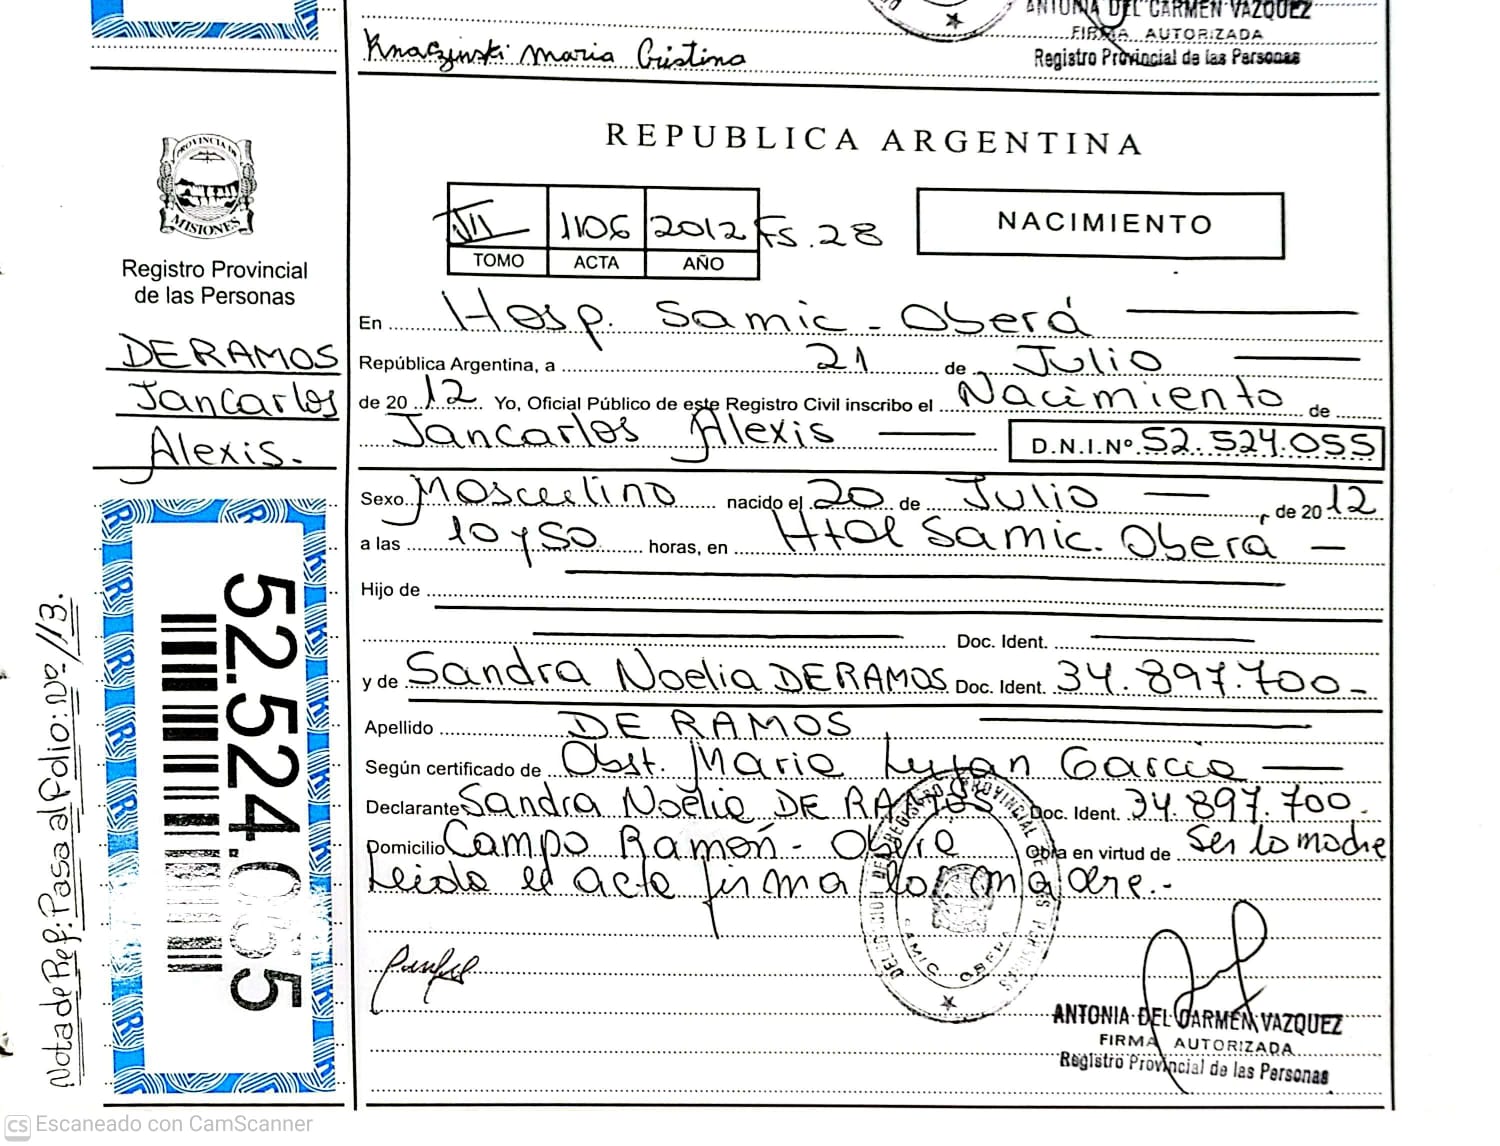 ANTONIA DEL CARMEN VAZQUEZ
FIRMA AUTORIZADA
Registro Provincial de las Personas
Knaczinski Maria Cristina
REPUBLICA ARGENTINA
PROVINCIA DE
MISIONES
Registro Provincial
de las Personas
DERAMOS
Jancarlos
Alexis.
VII 1106 2012 Fs. 28
TOMO ACTA AÑO
NACIMIENTO
En Hosp. Samic - Oberá
República Argentina, a 21 de Julio
de 20 12 Yo, Oficial Público de este Registro Civil inscribo el Nacimiento de
Jancarlos Alexis D.N.I.Nº 52.524.055
Sexo Masculino nacido el 20 de Julio de 20 12
a las 10 y 50 horas, en Htal Samic. Oberá
Hijo de
Doc. Ident.
y de Sandra Noelia DERAMOS Doc. Ident. 34.897.700-
Apellido DE RAMOS
Según certificado de Obst. Maria Lujan Garcia
Declarante Sandra Noelia DE RAMOS Doc. Ident. 34.897.700.
Domicilio Campo Ramón - Oberá Obra en virtud de Ser la madre
Leida el acta firma la madre.-
ANTONIA DEL CARMEN VAZQUEZ
FIRMA AUTORIZADA
Registro Provincial de las Personas
52.524.055
Nota de Ref: Pasa al Folio: Nº 113.
CS Escaneado con CamScanner